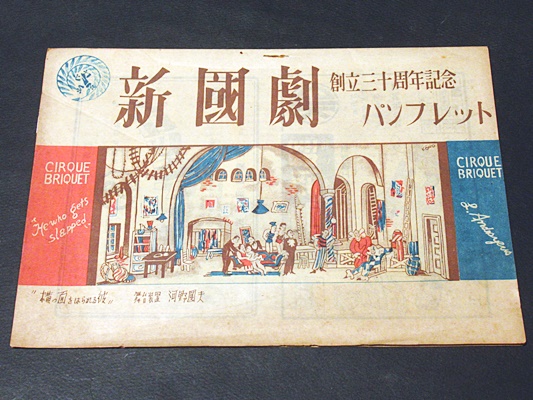 新國劇
創立三十周年記念
パンフレット
CIRQUE
BRIQUET
"He who gets
slapped"
CIRQUE
BRIQUET
L. Andreyeus
"横っ面をはられる彼"
舞台装置 河野國夫